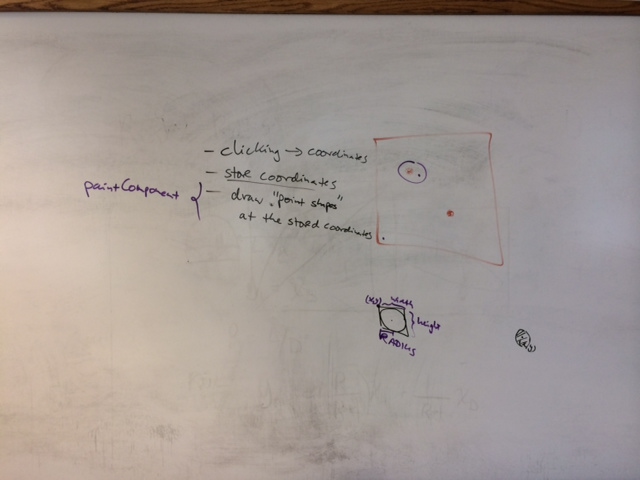 - clicking → coordinates
- store coordinates
paintComponent {
- draw "point shapes"
at the stored coordinates.
(x,y) width
height
RADIUS